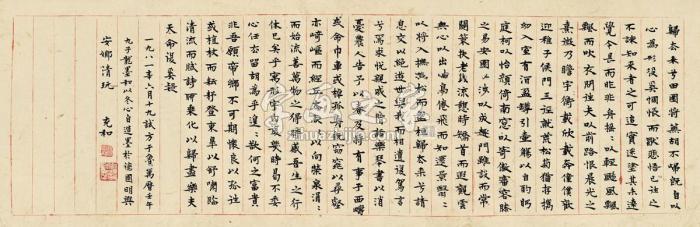 歸去來兮田園將蕪胡不歸既自以
心為形役奚惆悵而獨悲悟已往之
不諫知來者之可追實迷塗其未遠
覺今是而昨非舟搖〻以輕颺風飄
飄而吹衣問征夫以前路恨晨光之
熹微乃瞻宇衡載欣載奔僮僕歡
迎稚子候門三逕就荒松菊猶存攜
幼入室有酒盈罇引壺觴以自酌眄
庭柯以怡顏倚南窗以寄傲審容膝
之易安園日涉以成趣門雖設而常
關策扶老以流憩時矯首而遐觀雲
無心以出岫鳥倦飛而知還景翳〻
以將入撫孤松而盤桓歸去來兮請
息交以絕遊世與我而相遺復駕言
兮焉求悅親戚之情話樂琴書以消
憂農人告予以春及將有事乎西疇
或命巾車或棹孤舟既窈窕以尋壑
亦崎嶇而經丘木欣〻以向榮泉涓〻
而始流善萬物之得時感吾生之行
休已矣乎寓形宇內復幾時曷不委
心任去留胡為乎遑〻欲何之富貴
非吾願帝鄉不可期懷良以孤往
或植杖而耘耔登東皋以舒嘯臨
清流而賦詩聊乘化以歸盡樂夫
天命復奚疑
一九八一年六月十九試方于魯萬曆壬年
九子龍墨和以冬心自造墨於德國明興
安娜清玩 充和